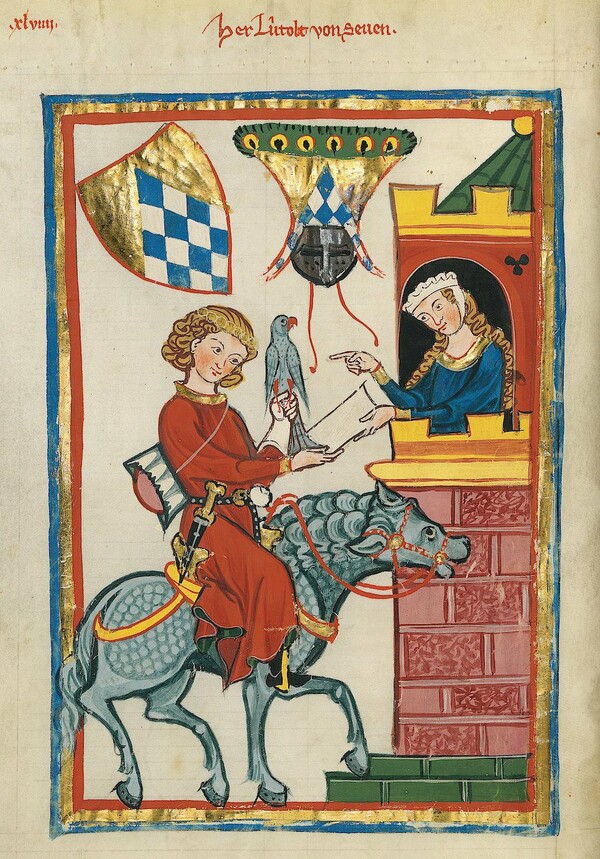 xlviiij.
Her Lûtolt von Seuen.